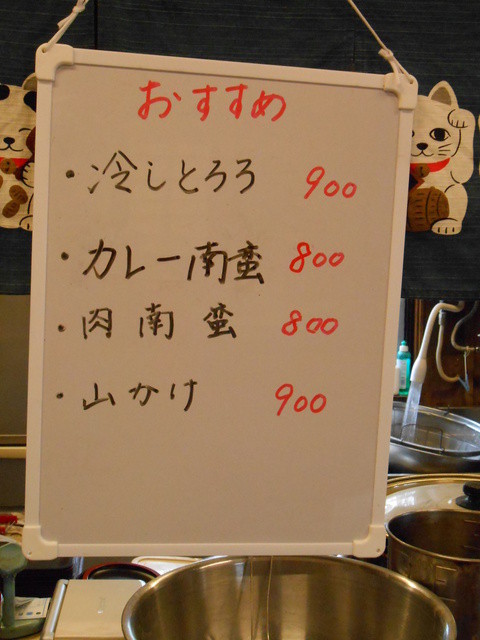 おすすめ
・冷しとろろ 900
・カレー南蛮 800
・肉南蛮 800
・山かけ 900